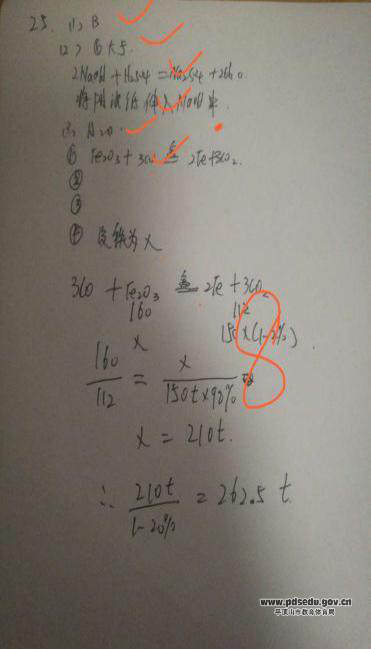 25. (1) B
(2) ⑥ 大于
2NaOH + H2SO4 = Na2SO4 + 2H2O
(3) H2O
① Fe2O3 + 3CO 高温 2Fe+3CO2.
②
③
④ 设铁为x
3CO + Fe2O3 高温 2Fe + 3CO2
160 112
x 150×(1-2%)
160/112 = x/150t×98%
x = 210t.
∴ 210t/1-20% = 262.5 t
www.pdsedu.gov.cn
平顶山市教育体育局